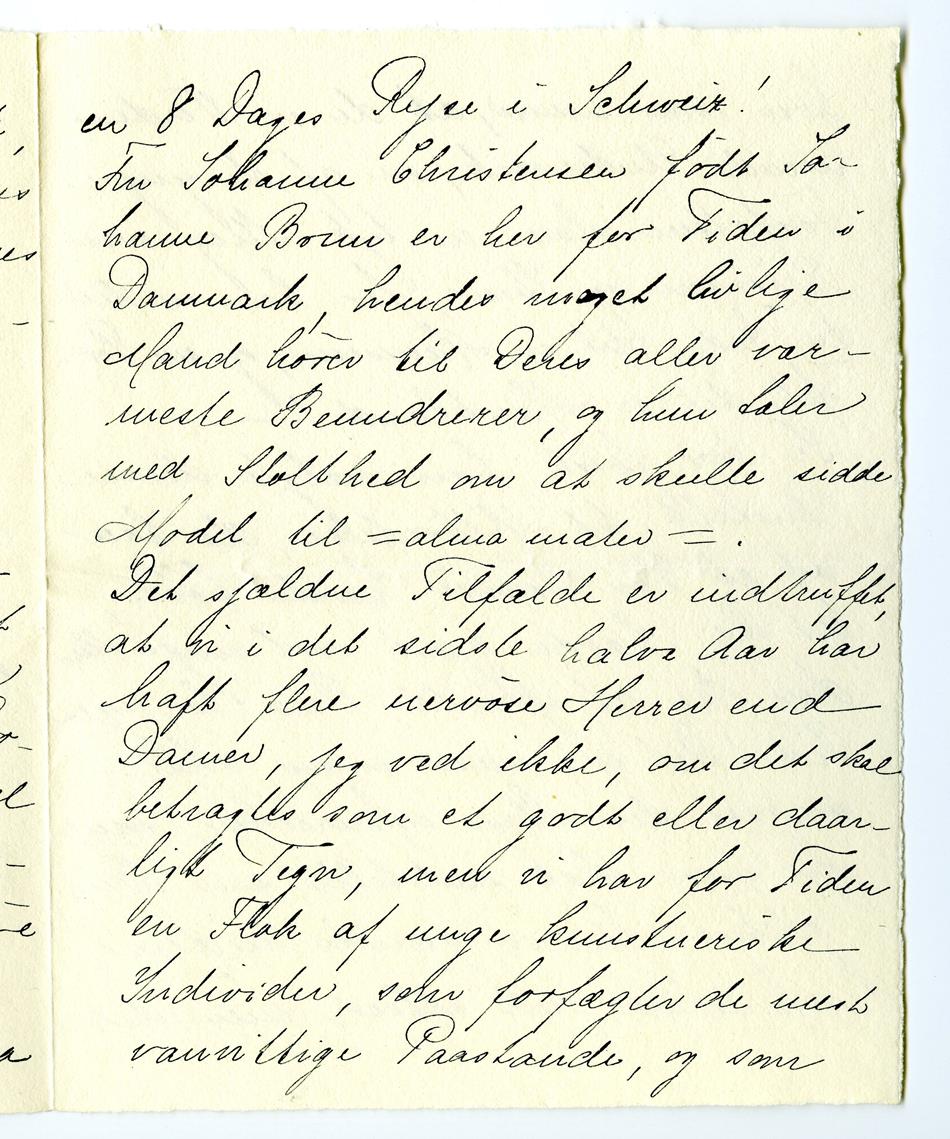 en 8 Dages Rejse i Schweiz!
Fru Johanne Christensen födt Jo-
hanne Brun er her for Tiden i
Danmark, hendes meget livlige
Mand hörer til Deres aller var-
meste Beundrerer, og hun taler
med Stolthed om at skulle sidde
Model til =alma mater=.
Det sjældne Tilfælde er indtruffet,
at vi i det sidste halve Aar har
haft flere nervöse Herrer end
Damer, jeg ved ikke, om det skal
betragtes som et godt eller daar-
ligt Tegn, men vi har for Tiden
en Flok af unge kunstneriske
Individer, som forfægter de mest
vanvittige Paastande, og som